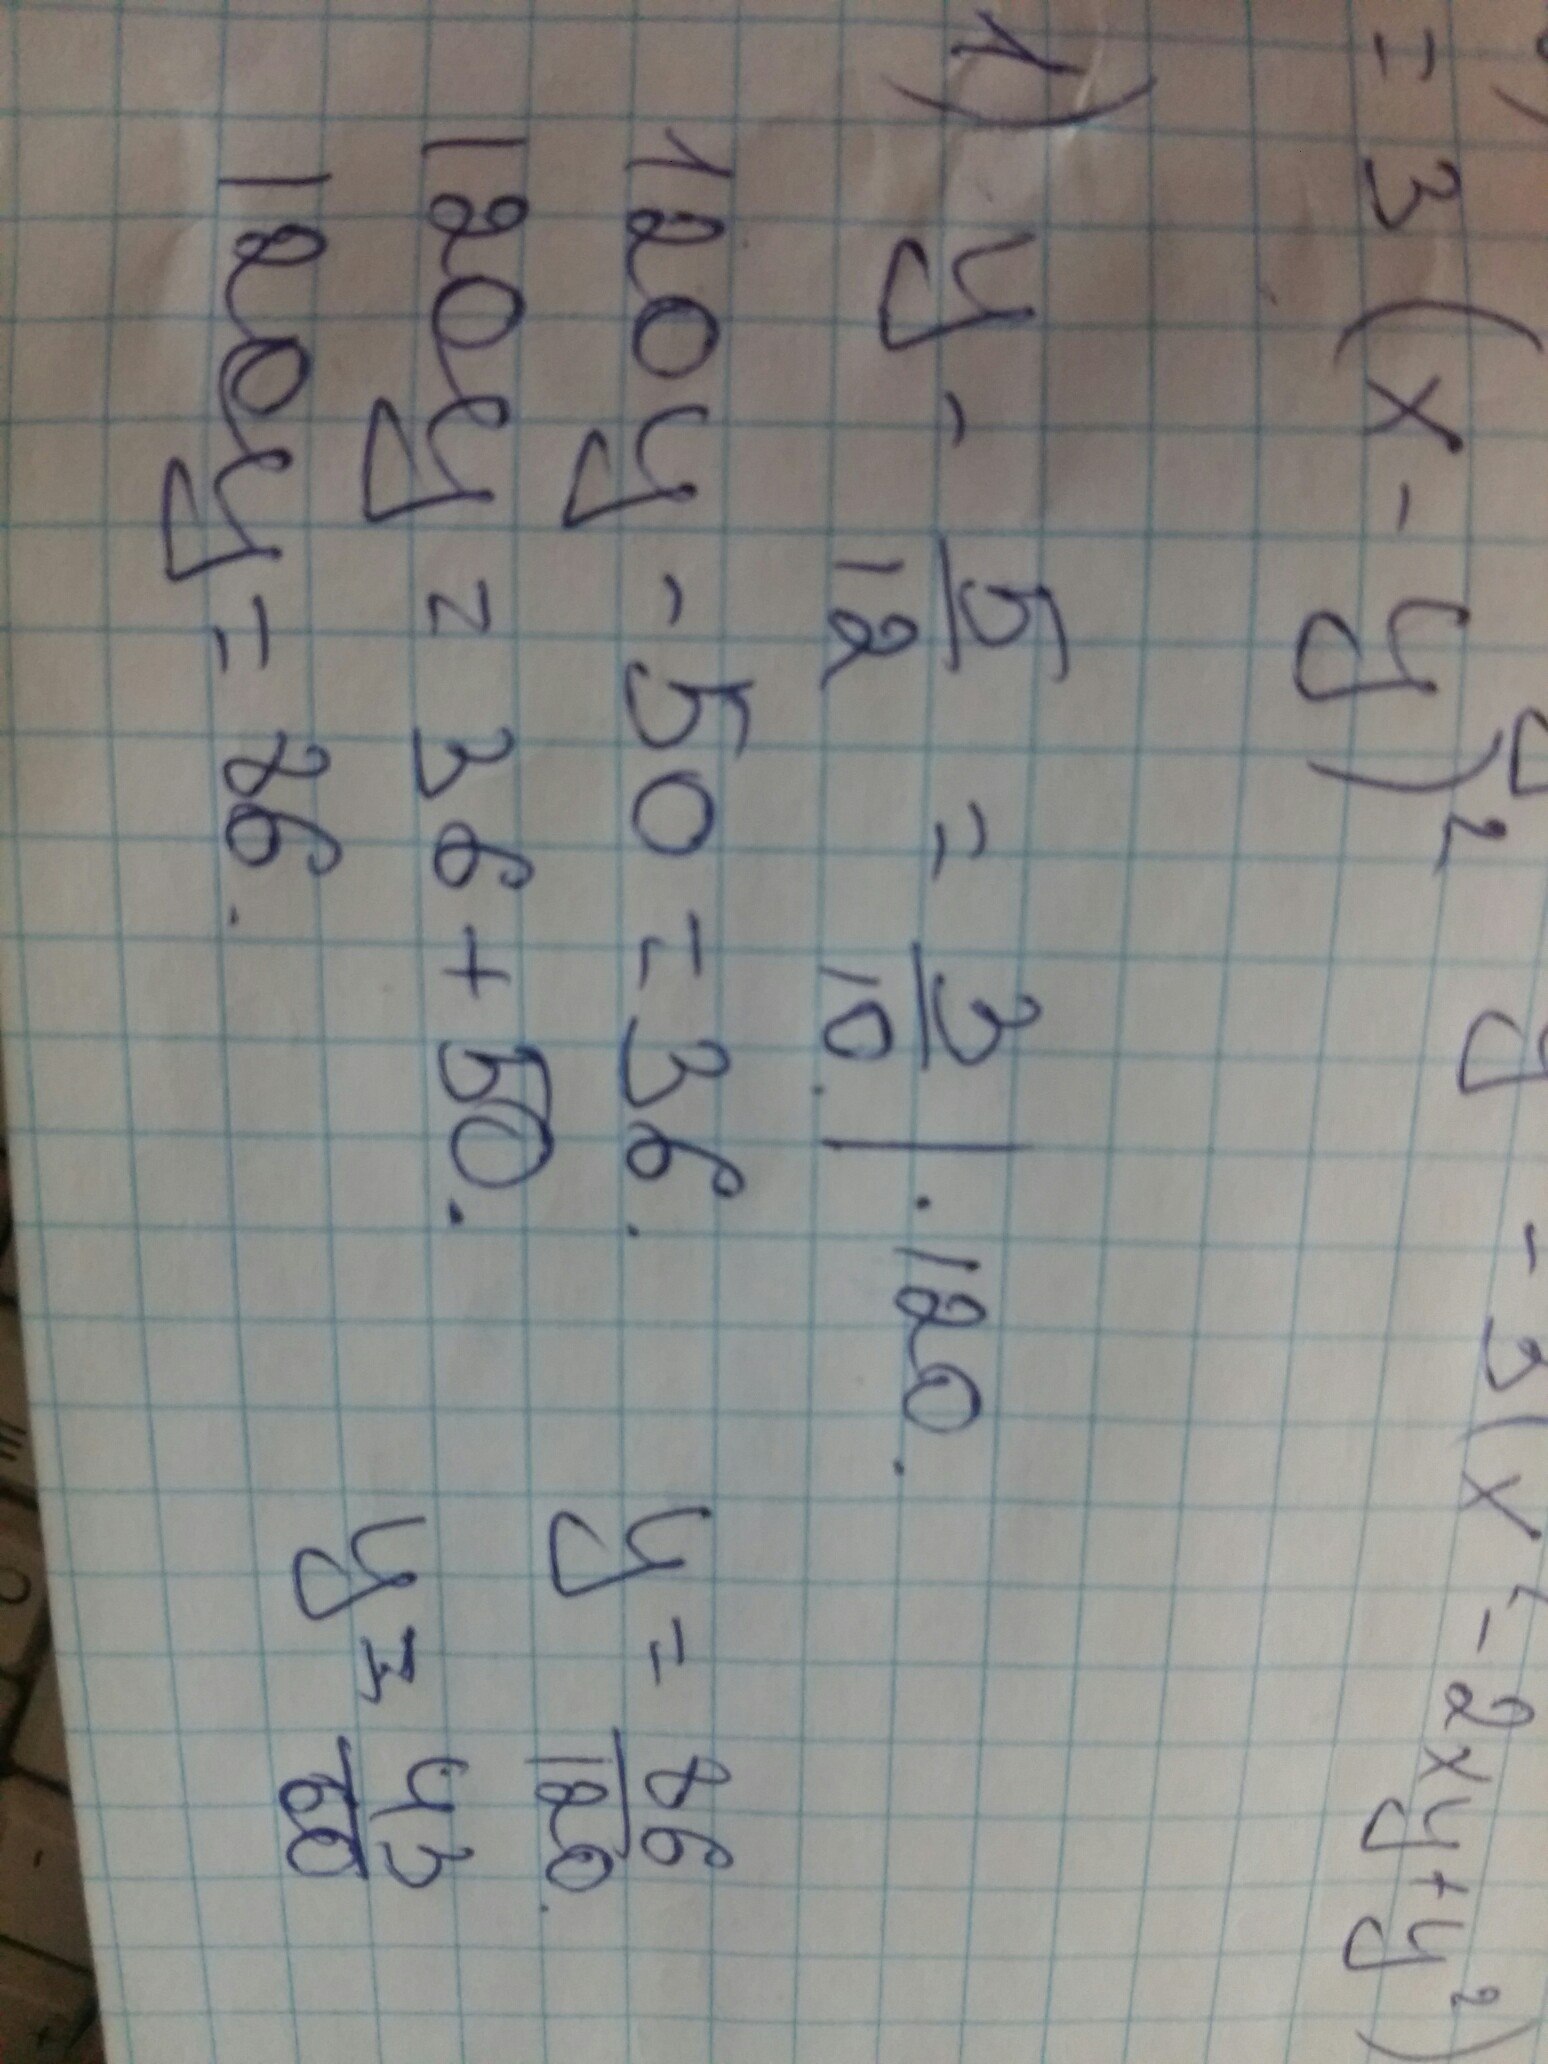 - 3(x² - 2xy + y²)
= 3(x - y)²
1) y - 5/12 = 3/10. | · 120.
120y - 50 = 36.
120y = 36 + 50.
120y = 86.
y = 86/120.
y = 43/60